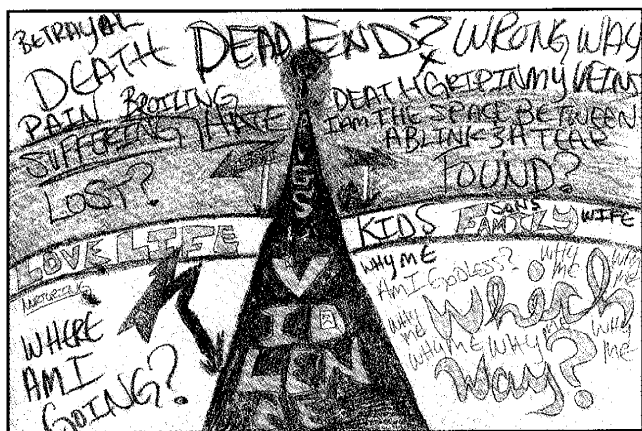 BETRAYAL
DEATH
DEAD END?
WRONG WAY
PAIN BROILING
SUFFERING HATE
DEATH GRIP IN MY VEINS
I AM THE SPACE BETWEEN
A BLINK & A TEAR
LOST?
FOUND?
LOVE LIFE
KIDS
SONS
FAMILY
WIFE
WHERE
AM I
GOING?
VIOLENCE
WHY ME
AM I GODLESS?
WHY
ME
WHY
ME
WHY
ME
WHY ME WHY ME
WHY
ME
Which
Way?